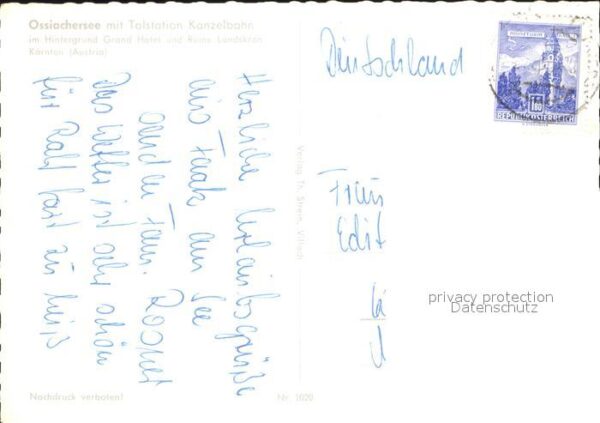 Ossiachersee mit Talstation Kanzelbahn
im Hintergrund Grand Hotel und Ruine Landskron
Kärnten (Austria)
Herzliche Urlaubsgrüße
aus Faak am See
sendet Fam.
Das Wetter ist sehr schön
für Ralf fast zu heiß
Verlag Th. Strein, Villach
Nachdruck verboten!
Nr. 1020
Deutschland
Frau
Edit
1.80
REPUBLIK ÖSTERREICH
privacy protection
Datenschutz